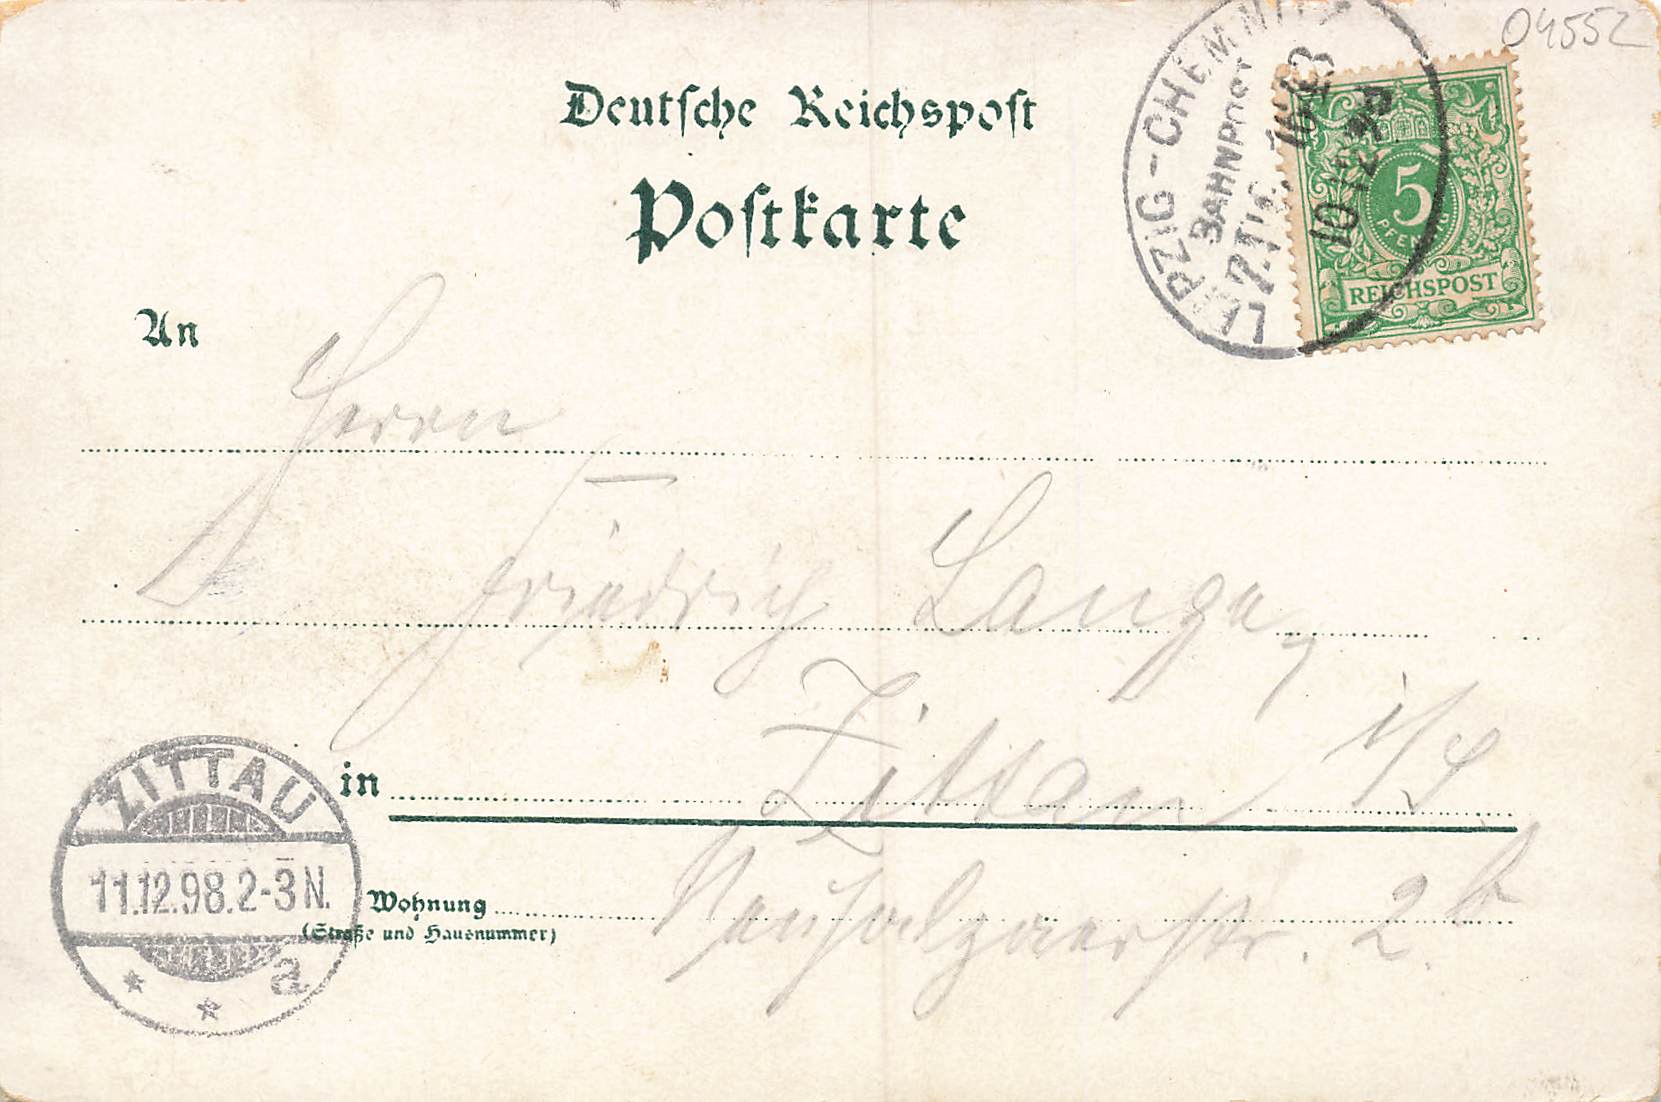 04552
Deutsche Reichspost
Postkarte
LEIPZIG-CHEMNITZ
BAHNPOST
10 12 98
5
PFENNIG
REICHSPOST
An
Herrn
Friedrich Lange,
in Zittau i/S
Wohnung 2b
(Straße und Hausnummer)
ZITTAU
11.12.98.2-3N.
* * a